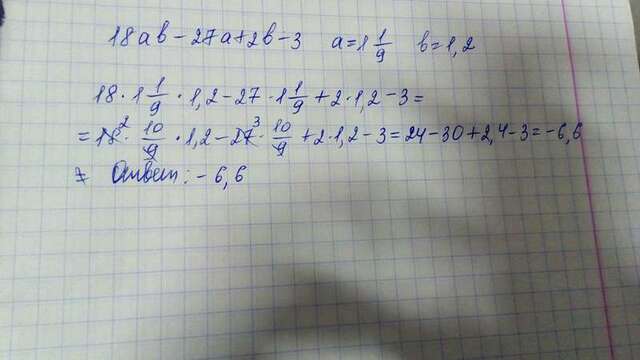 18ab - 27a + 2b - 3   a = 1 1/9   b = 1,2
18 · 1 1/9 · 1,2 - 27 · 1 1/9 + 2 · 1,2 - 3 =
= 18² · 10/9 · 1,2 - 27³ · 10/9 + 2 · 1,2 - 3 = 24 - 30 + 2,4 - 3 = -6,6
Ответ: - 6,6